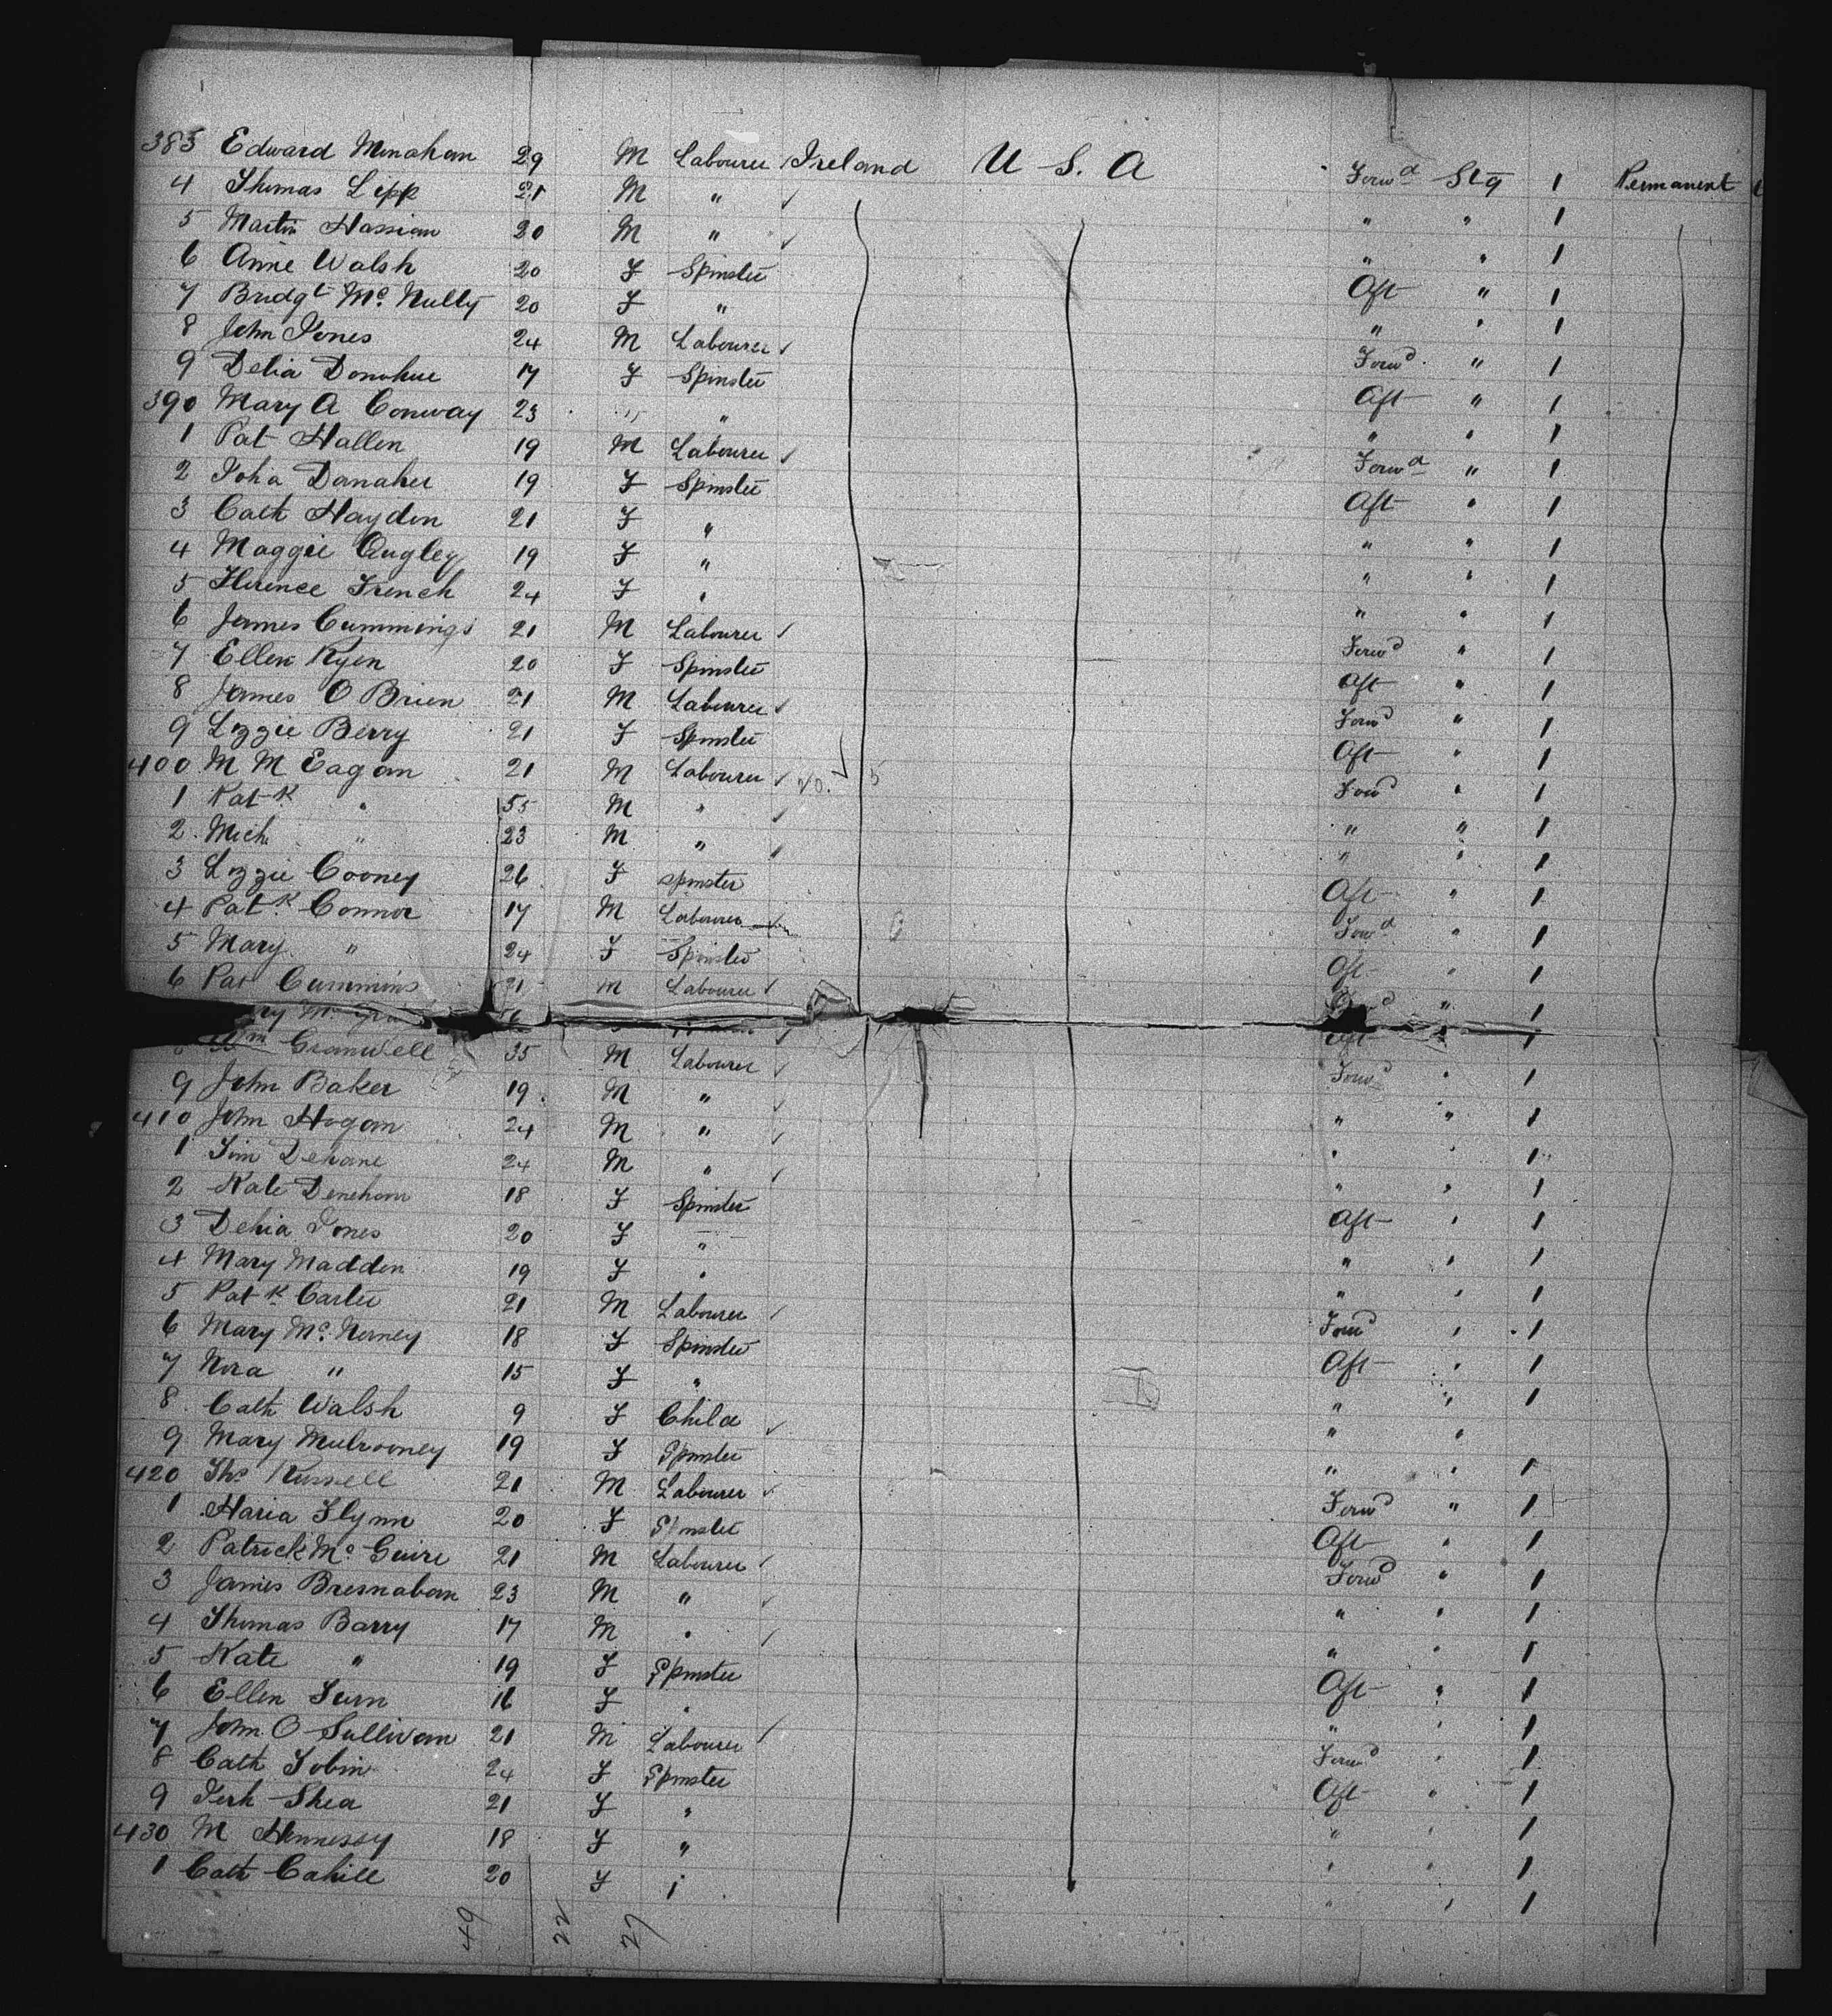 383 Edward Minahan 29 M Labourer Ireland U S. A Forwd Stg 1 Permanent
4 Thomas Lipp 21 M " " " 1
5 Martin Hassian 20 M " " " 1
6 Annie Walsh 20 F Spinster Aft " 1
7 Bridgt Mc Nulty 20 F " " " 1
8 John Jones 24 M Labourer Forwd " 1
9 Delia Donohue 17 F Spinster Aft " 1
390 Mary A Conway 23 " " " " 1
1 Pat Hallen 19 M Labourer Forwd " 1
2 Joha Danaher 19 F Spinster Aft " 1
3 Cath Hayden 21 F " " " 1
4 Maggie Qugley 19 F " " " 1
5 Florence French 24 F " " " 1
6 James Cummings 21 M Labourer Forwd " 1
7 Ellen Ryen 20 F Spinster Aft " 1
8 James O Brien 21 M Labourer Forwd " 1
9 Lizzie Berry 21 F Spinster Aft " 1
400 M M Eagan 21 M Labourer Forwd " 1
1 Patk " 55 M " " " 1
2 Mich " 23 M " " " 1
3 Lizzie Cooney 26 F Spinster Aft " 1
4 Patk Connor 17 M Labourer Forwd " 1
5 Mary " 24 F Spinster Aft " 1
6 Pat Cummins 21 M Labourer " 1
Aft " 1
Wm Cranwell 35 M Labourer Forwd " 1
9 John Baker 19 M " " " 1
410 John Hogan 24 M " " " 1
1 Tim Dehane 24 M " " " 1
2 Kate Denehan 18 F Spinster Aft " 1
3 Delia Jones 20 F " " " 1
4 Mary Madden 19 F " " " 1
5 Patk Carter 21 M Labourer Forwd " 1
6 Mary Mc Nerney 18 F Spinster Aft " 1
7 Nora " 15 F " " " 1
8 Cath Walsh 9 F Child " "
9 Mary Mulrooney 19 F Spinster " " 1
420 Ths Russell 21 M Labourer Forwd " 1
1 Maria Flynn 20 F Spinster Aft " 1
2 Patrick Mc Guire 21 M Labourer Forwd " 1
3 James Bresnahan 23 M " " " 1
4 Thomas Barry 17 M " " " 1
5 Kate " 19 F Spinster Aft " 1
6 Ellen Furn 16 F " " " 1
7 John O Sullivan 21 M Labourer Forwd " 1
8 Cath Tobin 24 F Spinster Aft " 1
9 Shea 21 F " " " 1
430 M Hennessy 18 F " " " 1
1 Cath Cahill 20 F " " " 1
49 22 27